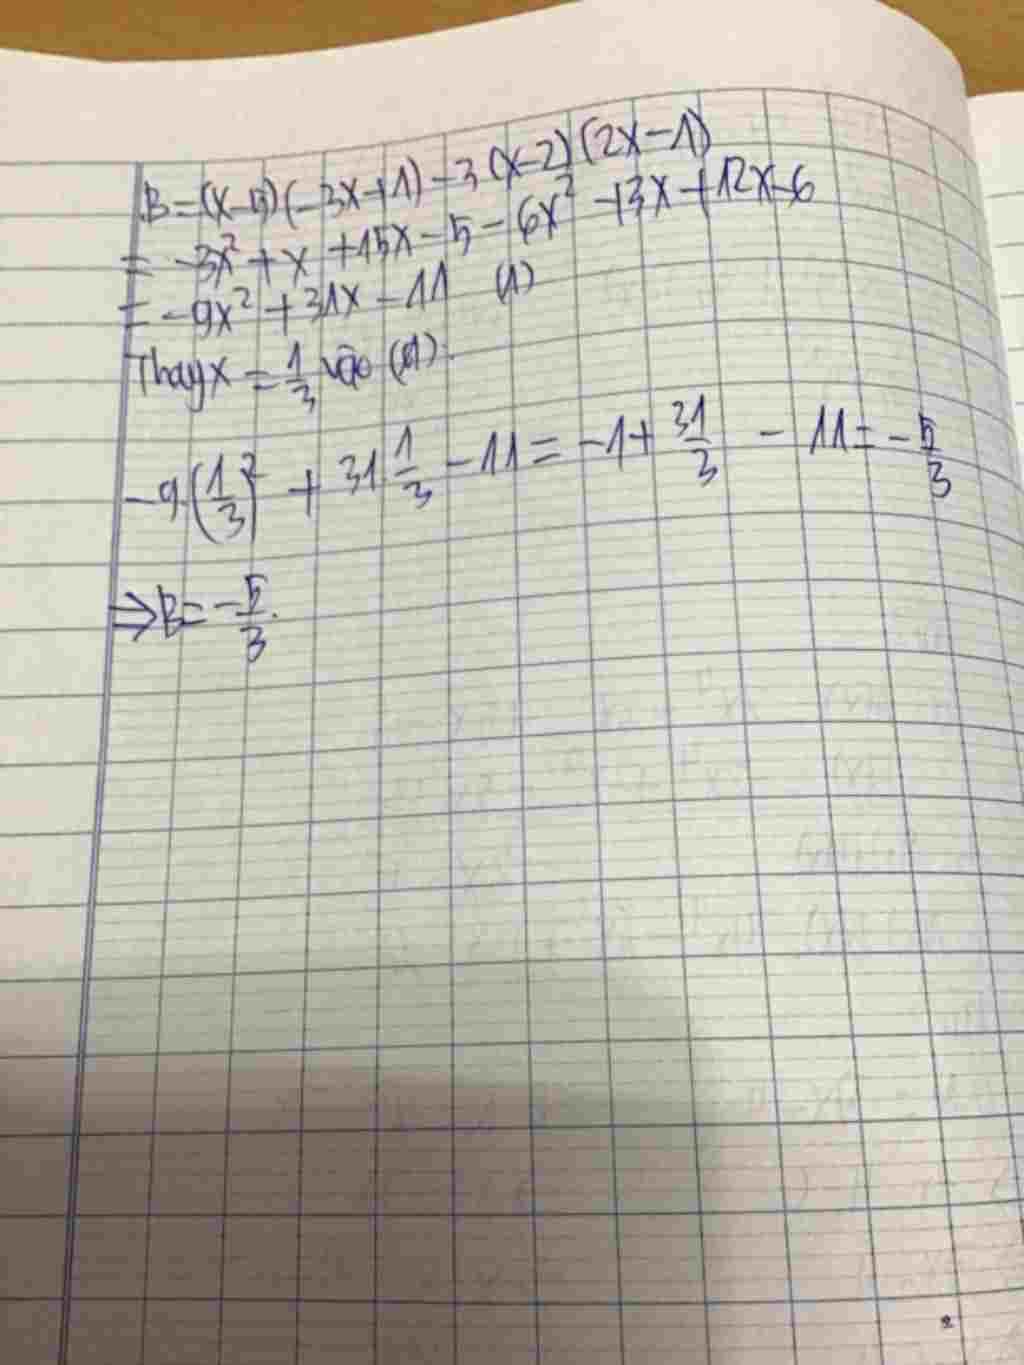 B=(x-5)(-3x+1)-3(x-2)(2x-1)
= -3x²+x+15x-5-6x²+3x+12x-6
= -9x²+31x-11 (1)
Thay x = 1/3 vào (1).
-9.(1/3)² + 31.1/3 - 11 = -1+31/3 - 11 = -5/3
⇒ B= -5/3.